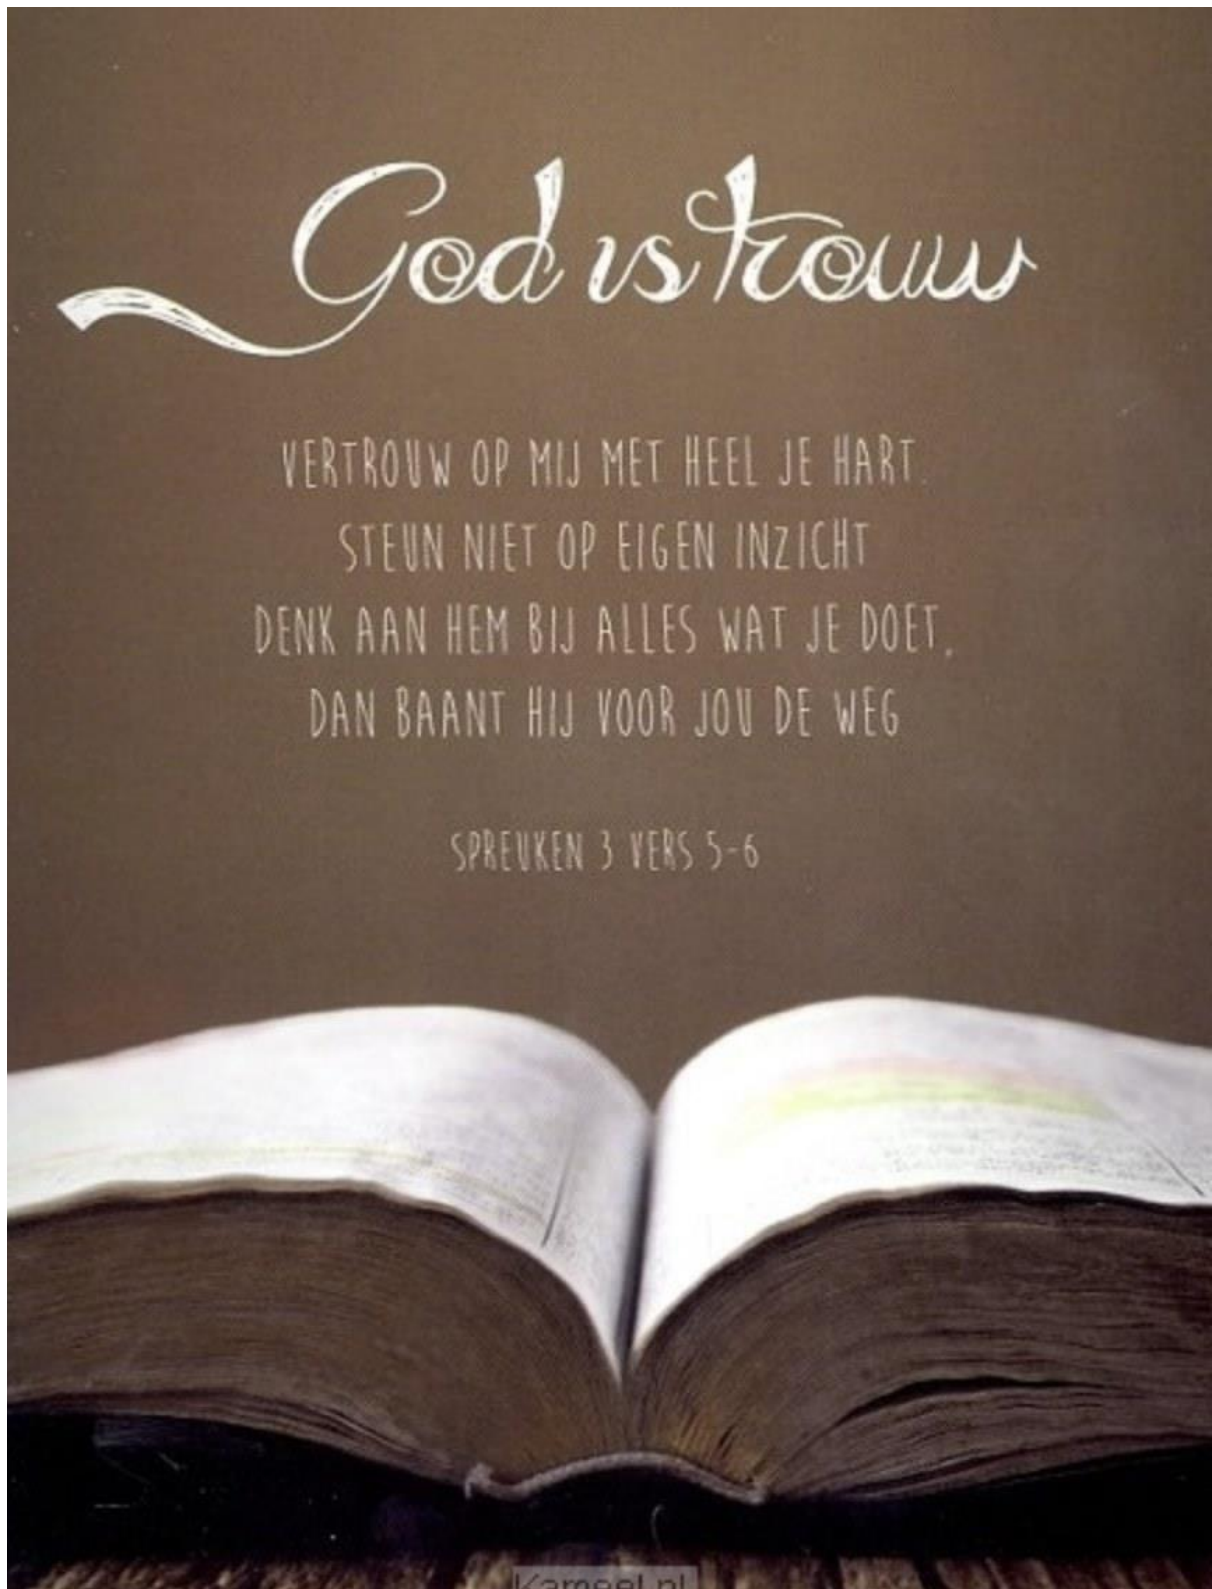 God is trouw
VERTROUW OP MIJ MET HEEL JE HART.
STEUN NIET OP EIGEN INZICHT
DENK AAN HEM BIJ ALLES WAT JE DOET,
DAN BAANT HIJ VOOR JOU DE WEG
SPREUKEN 3 VERS 5-6
Kameel.nl